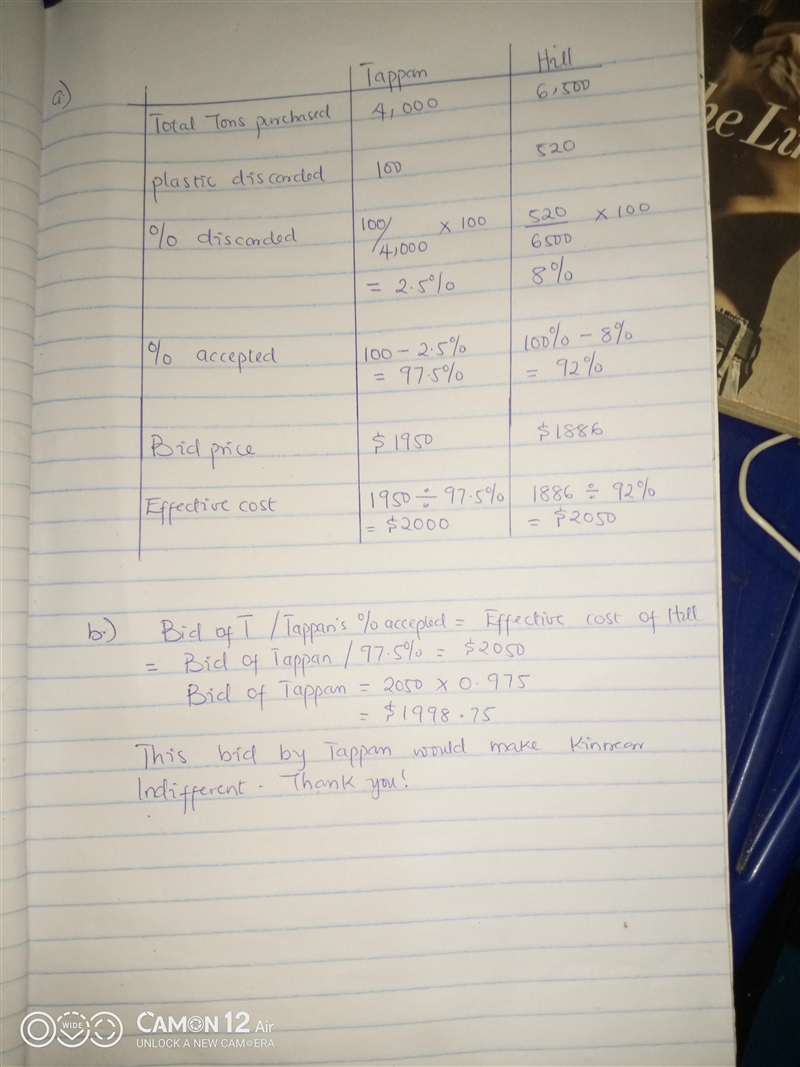 a.)
Tappan Hill
Total Tons purchased 4,000 6,500
plastic discarded 100 520
% discarded 100/4,000 × 100 520/6500 × 100
= 2.5% 8%
% accepted 100 - 2.5% 100% - 8%
= 97.5% = 92%
Bid price $1950 $1886
Effective cost 1950 ÷ 97.5% 1886 ÷ 92%
= $2000 = $2050
b.) Bid of T / Tappan's % accepted = Effective cost of Hill
= Bid of Tappan / 97.5% = $2050
Bid of Tappan = 2050 × 0.975
= $1998.75
This bid by Tappan would make Kinnear
Indifferent. Thank you!
he Lu
WIDE
CAMON 12 Air
UNLOCK A NEW CAMERA